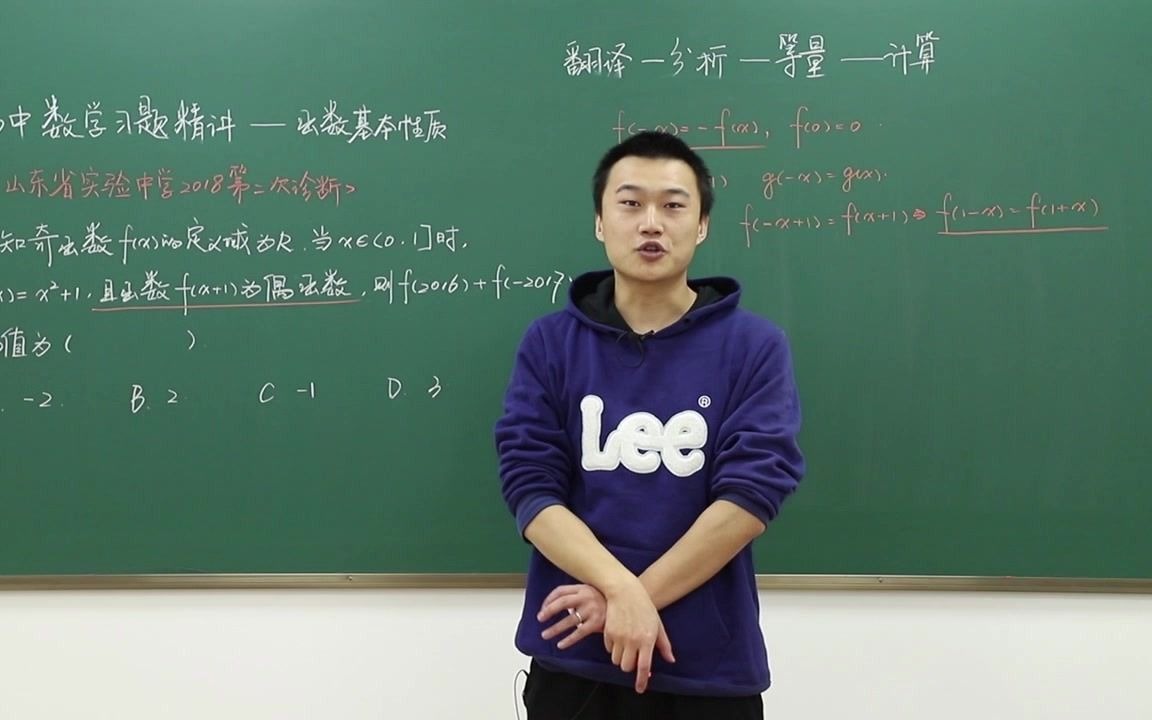 中数学习题精讲 — 函数基本性质
山东省实验中学2018第二次诊断>
知奇函数f(x)的定义域为R.当x∈(0,1]时,
x)= x²+1,且函数f(x+1)为偶函数,则f(2016)+f(-2017
值为( )
-2. B. 2 C -1 D. 3
翻译—分析—等量—计算
f(-x)=-f(x), f(0)=0
g(-x)=g(x).
f(-x+1)=f(x+1)⇒ f(1-x)=f(1+x)
Lee®